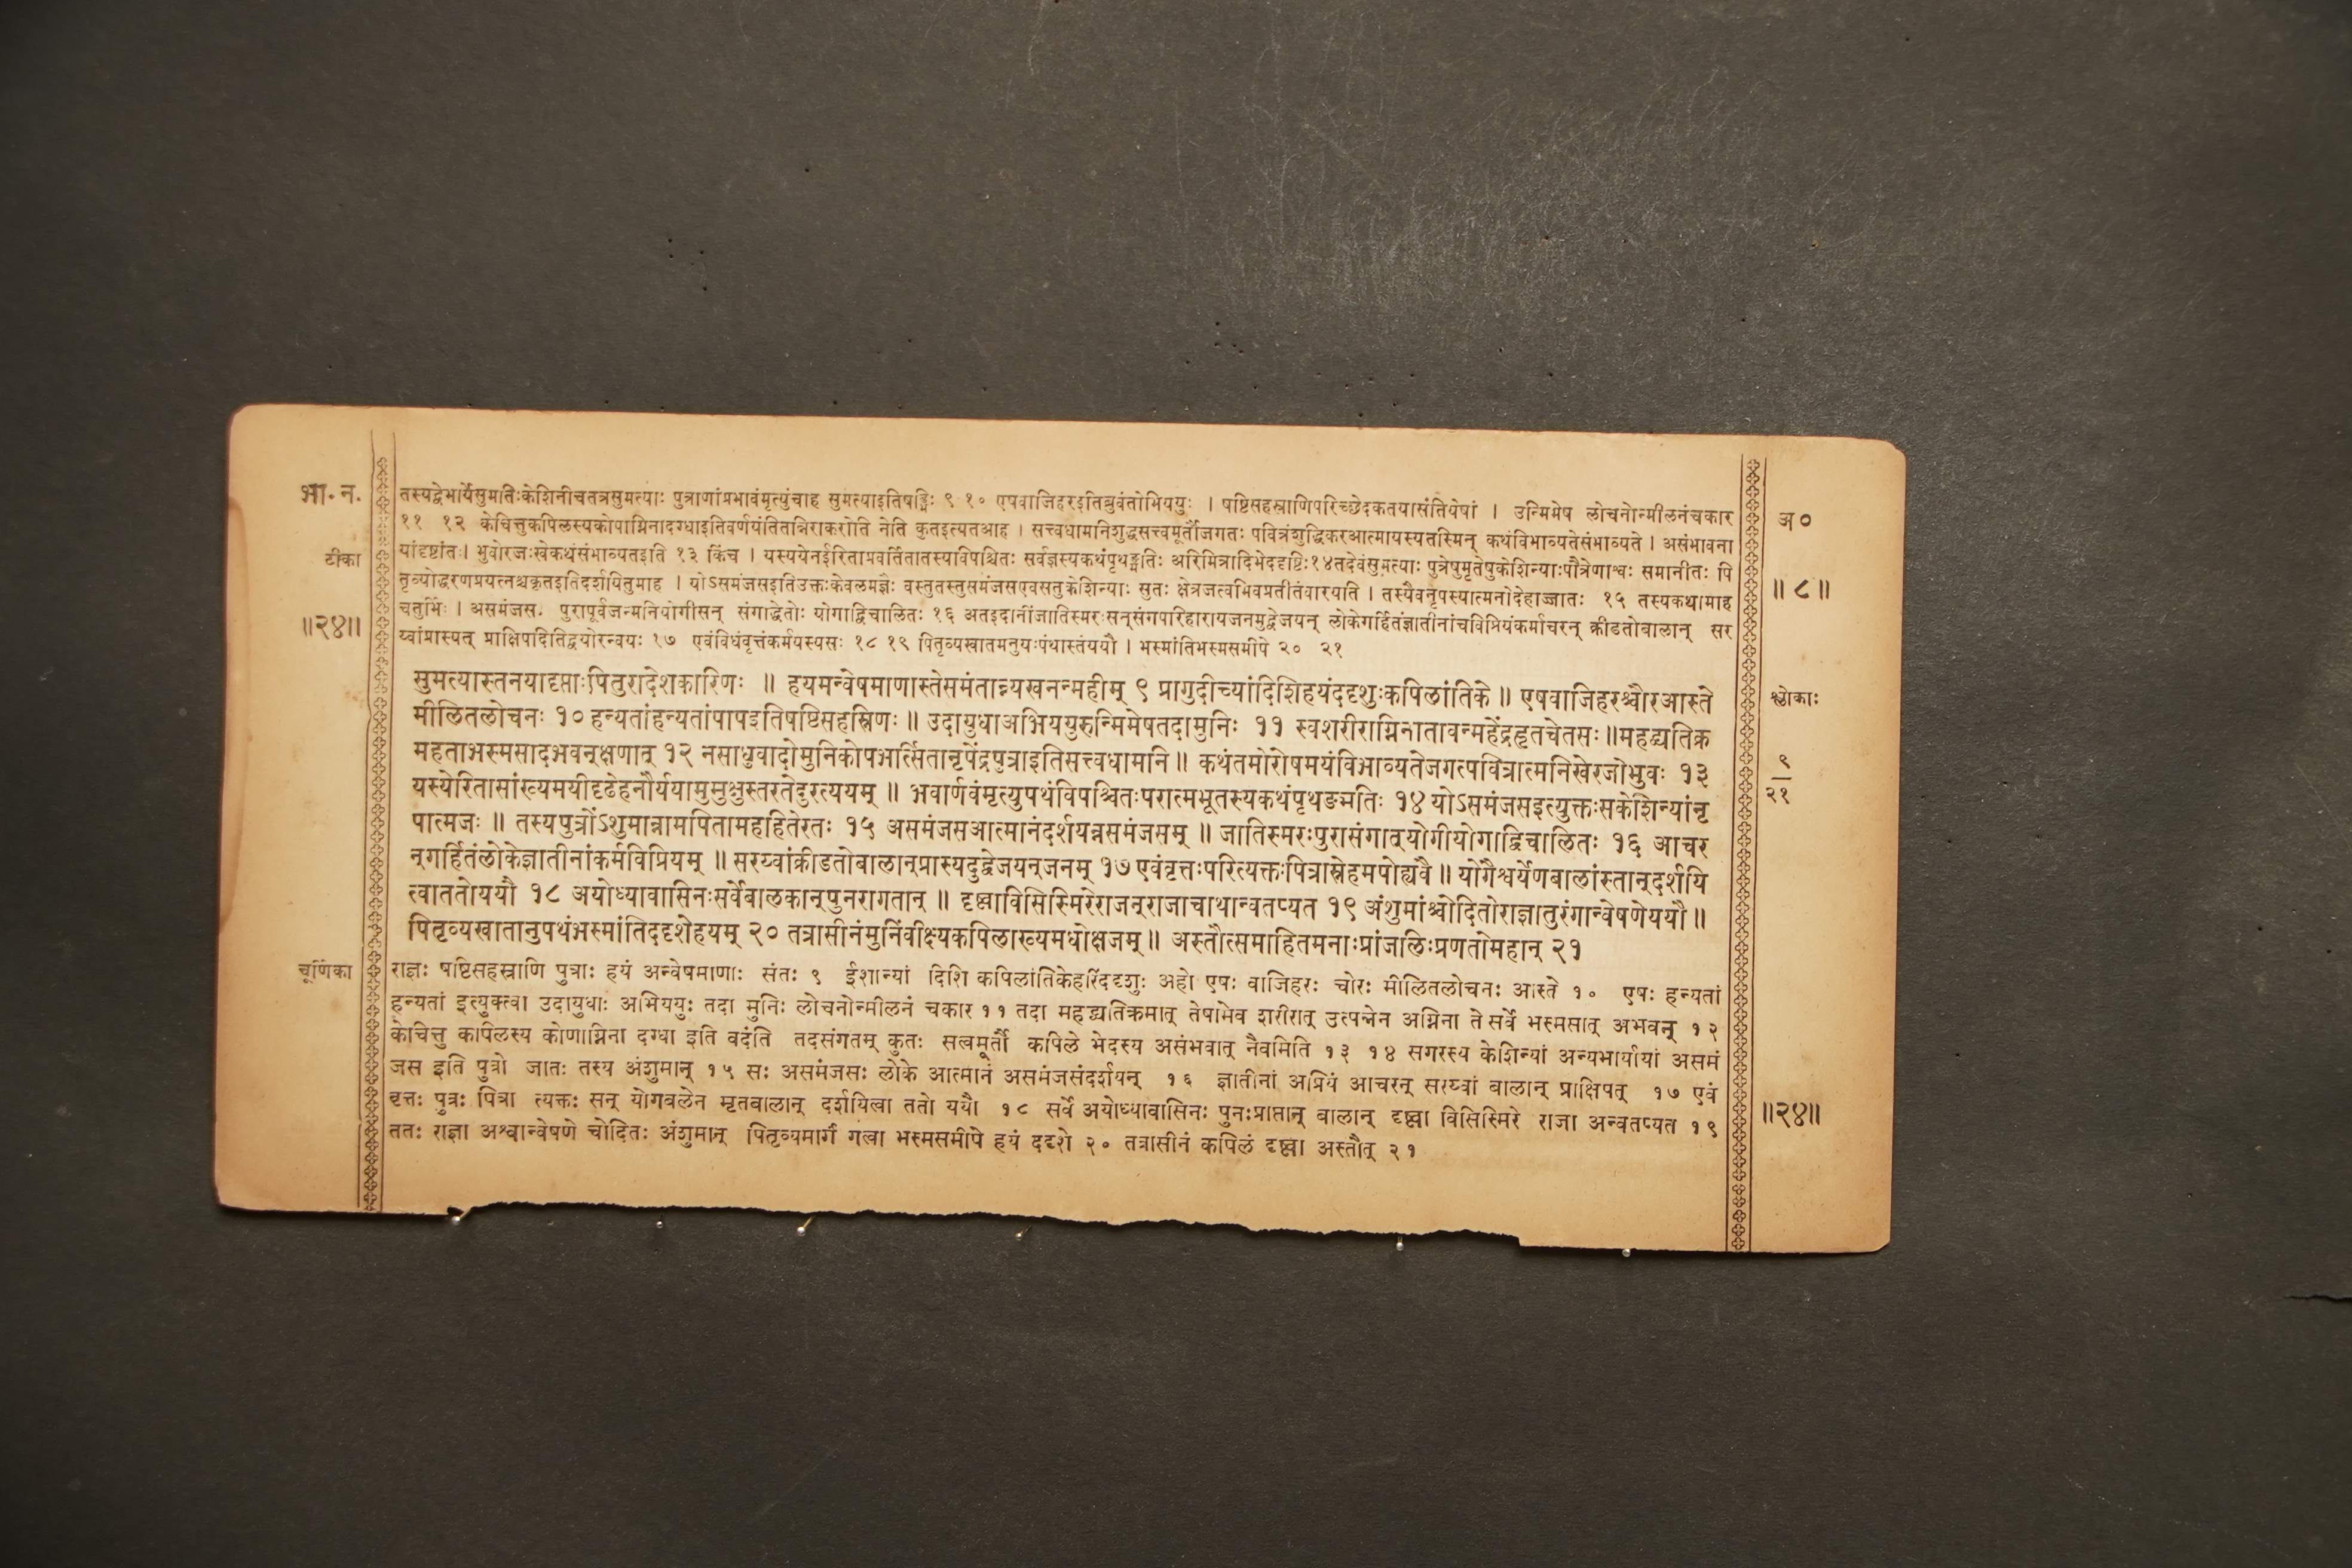 भा. न.
टीका
॥२४॥
तस्यद्वेभार्येसुमतिःकेशिनीचतत्रसुमत्याः पुत्राणांप्रभावंमृत्युंचाह सुमत्याइतिषड्भिः ९ १० एषवाजिहरइतिब्रुवंतोभिययुः । षष्टिसहस्राणिपरिच्छेदकतयासंतियेषां । उन्मिमेष लोचनोन्मीलनंचकार
११ १२ केचित्तुकपिलस्यकोपाग्निनादग्धाइतिवर्णयंतितन्निराकरोति नेति कुतइत्यतआह । सत्त्वधामनिशुद्धसत्त्वमूर्तौजगतः पवित्रंशुद्धिकरआत्मायस्यतस्मिन् कथंविभाव्यतेसंभाव्यते । असंभावना
यांदृष्टांतः । भुवोरजःखेकथंसंभाव्यतइति १३ किंच । यस्ययेनईरिताप्रवर्तितातस्यविपश्चितः सर्वज्ञस्यकथंपृथङ्मतिः अरिमित्रादिभेददृष्टिः१४तदेवंसुमत्याः पुत्रेषुमृतेषुकेशिन्याःपौत्रेणाश्वः समानीतः पि
तृव्योद्धरणप्रयत्नश्चकृतइतिदर्शयितुमाह । योऽसमंजसइतिउक्तःकेवलमज्ञैः वस्तुतस्तुसमंजसएवसतुकेशिन्याः सुतः क्षेत्रजत्वभिवप्रतीतंवारयति । तस्यैवनृपस्यात्मनोदेहाज्जातः १५ तस्यकथामाह
चतुर्भिः । असमंजस. पुरापूर्वजन्मनियोगीसन् संगाद्धेतोः योगाद्विचालितः १६ अतइदानींजातिस्मरःसन्संगपरिहारायजनमुद्वेजयन् लोकेगर्हितंज्ञातीनांचविप्रियंकर्माचरन् क्रीडतोबालान् सर
य्वांप्रास्यत् प्राक्षिपदितिद्वयोरन्वयः १७ एवंविधंवृत्तंकर्मयस्यसः १८ १९ पितृव्यखातमनुयःपंथास्तंययौ । भस्मांतिभस्मसमीपे २० २१
सुमत्यास्तनयादृप्ताःपितुरादेशकारिणः ॥ हयमन्वेषमाणास्तेसमंतान्न्यखनन्महीम् ९ प्रागुदीच्यांदिशिहयंददृशुःकपिलांतिके ॥ एषवाजिहरश्चौरआस्ते
मीलितलोचनः १० हन्यतांहन्यतांपापइतिषष्टिसहस्रिणः ॥ उदायुधाअभिययुरुन्मिमेषतदामुनिः ११ स्वशरीराग्निनातावन्महेंद्रहृतचेतसः ॥महद्व्यतिक्र
महताभस्मसादभवन्क्षणात् १२ नसाधुवादोमुनिकोपभर्त्सितानृपेंद्रपुत्राइतिसत्त्वधामनि ॥ कथंतमोरोषमयंविभाव्यतेजगत्पवित्रात्मनिखेरजोभुवः १३
यस्येरितासांख्यमयीदृढेहनौर्ययामुमुक्षुस्तरतेदुरत्ययम् ॥ भवार्णवंमृत्युपथंविपश्चितःपरात्मभूतस्यकथंपृथङ्मतिः १४ योऽसमंजसइत्युक्तःसकेशिन्यांनृ
पात्मजः ॥ तस्यपुत्रोंऽशुमान्नामपितामहहितेरतः १५ असमंजसआत्मानंदर्शयन्नसमंजसम् ॥ जातिस्मरःपुरासंगात्योगीयोगाद्विचालितः १६ आचर
न्गर्हितंलोकेज्ञातीनांकर्मविप्रियम् ॥ सरय्वांक्रीडतोबालान्प्रास्यदुद्वेजयन्जनम् १७ एवंवृत्तःपरित्यक्तःपित्रास्नेहमपोह्यवै ॥ योगैश्वर्येणबालांस्तान्दर्शयि
त्वाततोययौ १८ अयोध्यावासिनःसर्वेबालकान्पुनरागतान् ॥ दृष्ट्वाविसिस्मिरेराजन्राजाचाथान्वतप्यत १९ अंशुमांश्चोदितोराज्ञातुरंगान्वेषणेययौ ॥
पितृव्यखातानुपथंभस्मांतिददृशेहयम् २० तत्रासीनंमुनिंवीक्ष्यकपिलाख्यमधोक्षजम् ॥ अस्तौत्समाहितमनाःप्रांजलिःप्रणतोमहान् २१
चूर्णिका
राज्ञः षष्टिसहस्राणि पुत्राः हयं अन्वेषमाणाः संतः ९ ईशान्यां दिशि कपिलांतिकेहरिंददृशुः अहो एषः वाजिहरः चोरः मीलितलोचनः आस्ते १० एषः हन्यतां
हन्यतां इत्युक्त्वा उदायुधाः अभिययुः तदा मुनिः लोचनोन्मीलनं चकार ११ तदा महद्व्यतिक्रमात् तेषामेव शरीरात् उत्पन्नेन अग्निना ते सर्वे भस्मसात् अभवन् १२
केचित्तु कपिलस्य कोणाग्निना दग्धा इति वदंति तदसंगतम् कुतः सत्वमूर्तौ कपिले भेदस्य असंभवात् नैवमिति १३ १४ सगरस्य केशिन्यां अन्यभार्यायां असमं
जस इति पुत्रो जातः तस्य अंशुमान् १५ सः असमंजसः लोके आत्मानं असमंजसंदर्शयन् १६ ज्ञातीनां अप्रियं आचरन् सरय्वां बालान् प्राक्षिपत् १७ एवं
वृत्तः पुत्रः पित्रा त्यक्तः सन् योगबलेन मृतबालान् दर्शयित्वा ततो ययौ १८ सर्वे अयोध्यावासिनः पुनःप्राप्तान् बालान् दृष्ट्वा विसिस्मिरे राजा अन्वतप्यत १९
ततः राज्ञा अश्वान्वेषणे चोदितः अंशुमान् पितृव्यमार्गं गत्वा भस्मसमीपे हयं ददृशे २० तत्रासीनं कपिलं दृष्ट्वा अस्तौत् २१
अ०
॥ ८ ॥
श्लोकाः
९
२१
॥२४॥